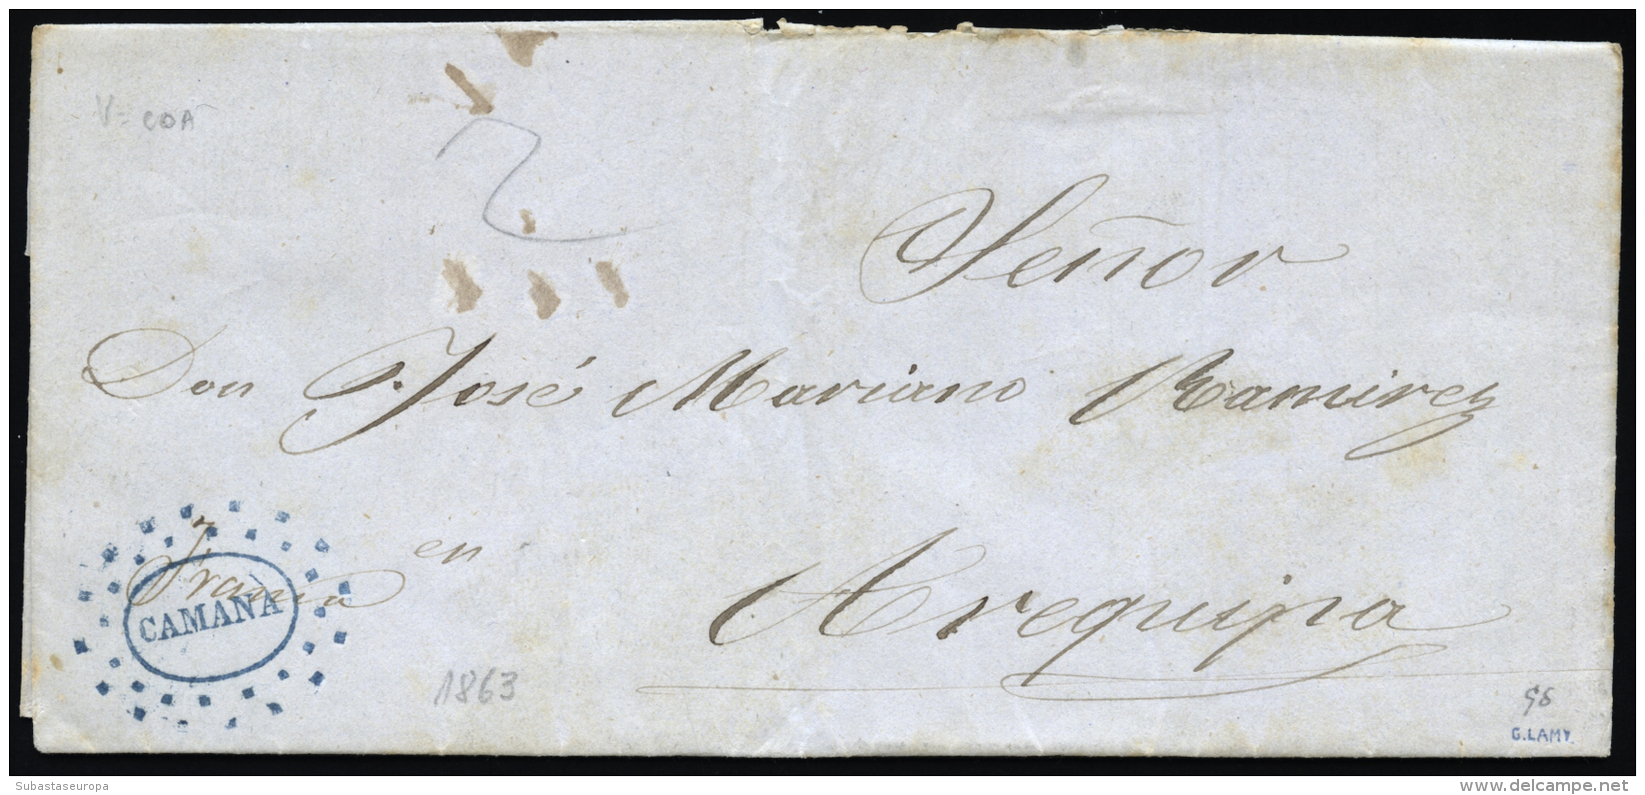 V= COA
2
Señor
Don José Mariano Ramirez
Franca en
CAMANÁ
Arequipa
1863
G.LAMY.
Subastaseuropa
delcampe.net